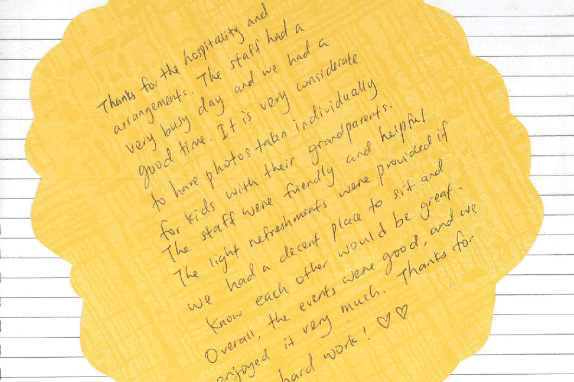 Thanks for the hospitality and
arrangements. The staff had a
very busy day and we had a
good time. It is very considerate
to have photos taken individually
for kids with their grandparents.
The staff were friendly and helpful
The light refreshments were provided if
we had a decent place to sit and
know each other would be great.
Overall, the events were good, and we
enjoyed it very much. Thanks for
hard work! ♡ ♡